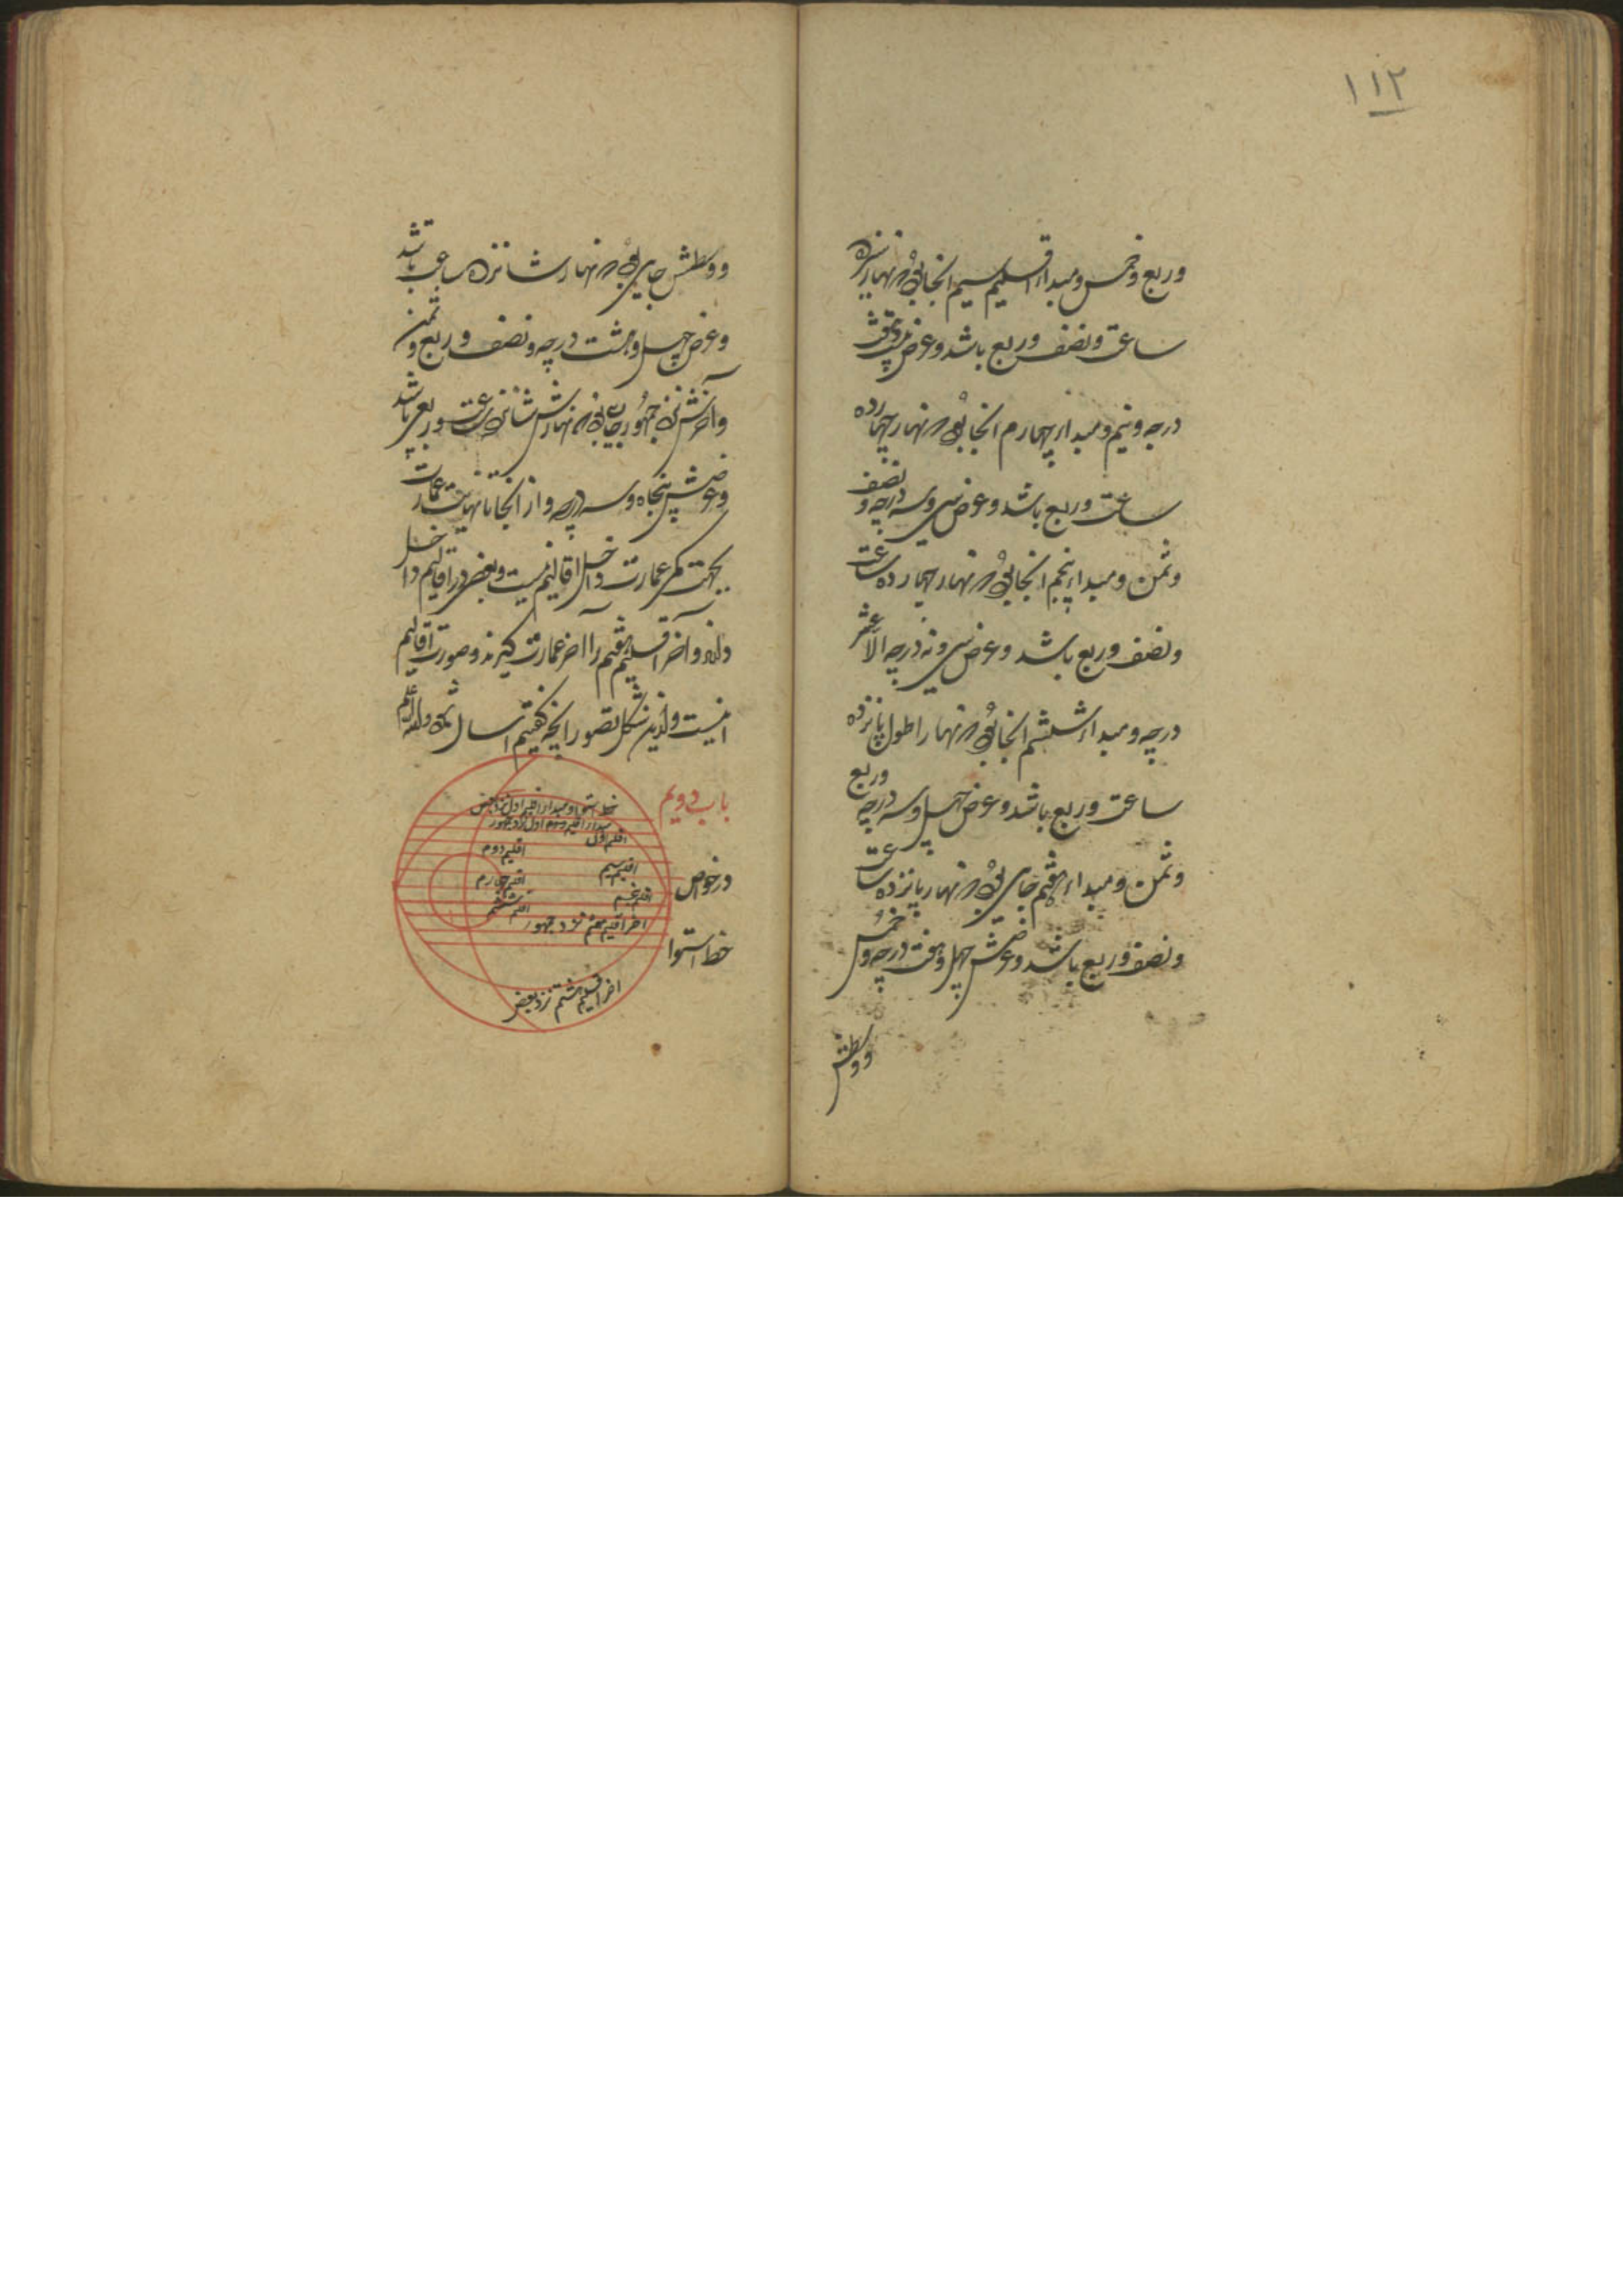 ۱۱۲
وربع وخمس ومبداء اقلیم سیم انجا بود که نهار سیزده
ساعت ونصف وربع باشد وعرض بیست وهفت
درجه ونیم ومبداء چهارم انجا بود که نهار چهارده
ساعت وربع باشد وعرض سی وسه درجه ونصف
وثمن ومبداء پنجم انجا بود که نهار چهارده ساعت
ونصف وربع باشد وعرض سی ونه درجه الا عشر
درجه ومبداء ششم انجا بود که نهار اطول پانزده
ساعت وربع باشد وعرض چهل وسه درجه وربع
وثمن ومبداء هفتم جای بود که نهار پانزده ساعت
ونصف وربع باشد وعرضش چهل وهفت درجه وخمس
ووسطش
ووسطش جای بود که نهار شانزده ساعت باشد
وعرض چهل وهشت درجه ونصف وربع وثمن
وآخرش نزد جمهور جایی بود که نهارش شانزده ساعت وربعی باشد
وعرضش پنجاه وسه درجه واز انجا تا نهایت عمارت
بجهت کمی عمارت داخل اقالیم نیست وبعضی در اقالیم داخل
دارند وآخر اقلیم هفتم را آخر عمارت گیرند وصورت اقالیم
اینست وازین شکل تصور آنچه گفتیم آسان شود والله اعلم
باب دویم
در خواص
خط استوا
خط استوا ومبداء اقلیم اول نزد بعضی
مبداء اقلیم اول نزد جمهور
اقلیم اول
اقلیم دوم
اقلیم سیم
اقلیم چهارم
اقلیم پنجم
اقلیم ششم
اخر اقلیم هفتم نزد جمهور
اخر اقلیم هفتم نزد بعضی